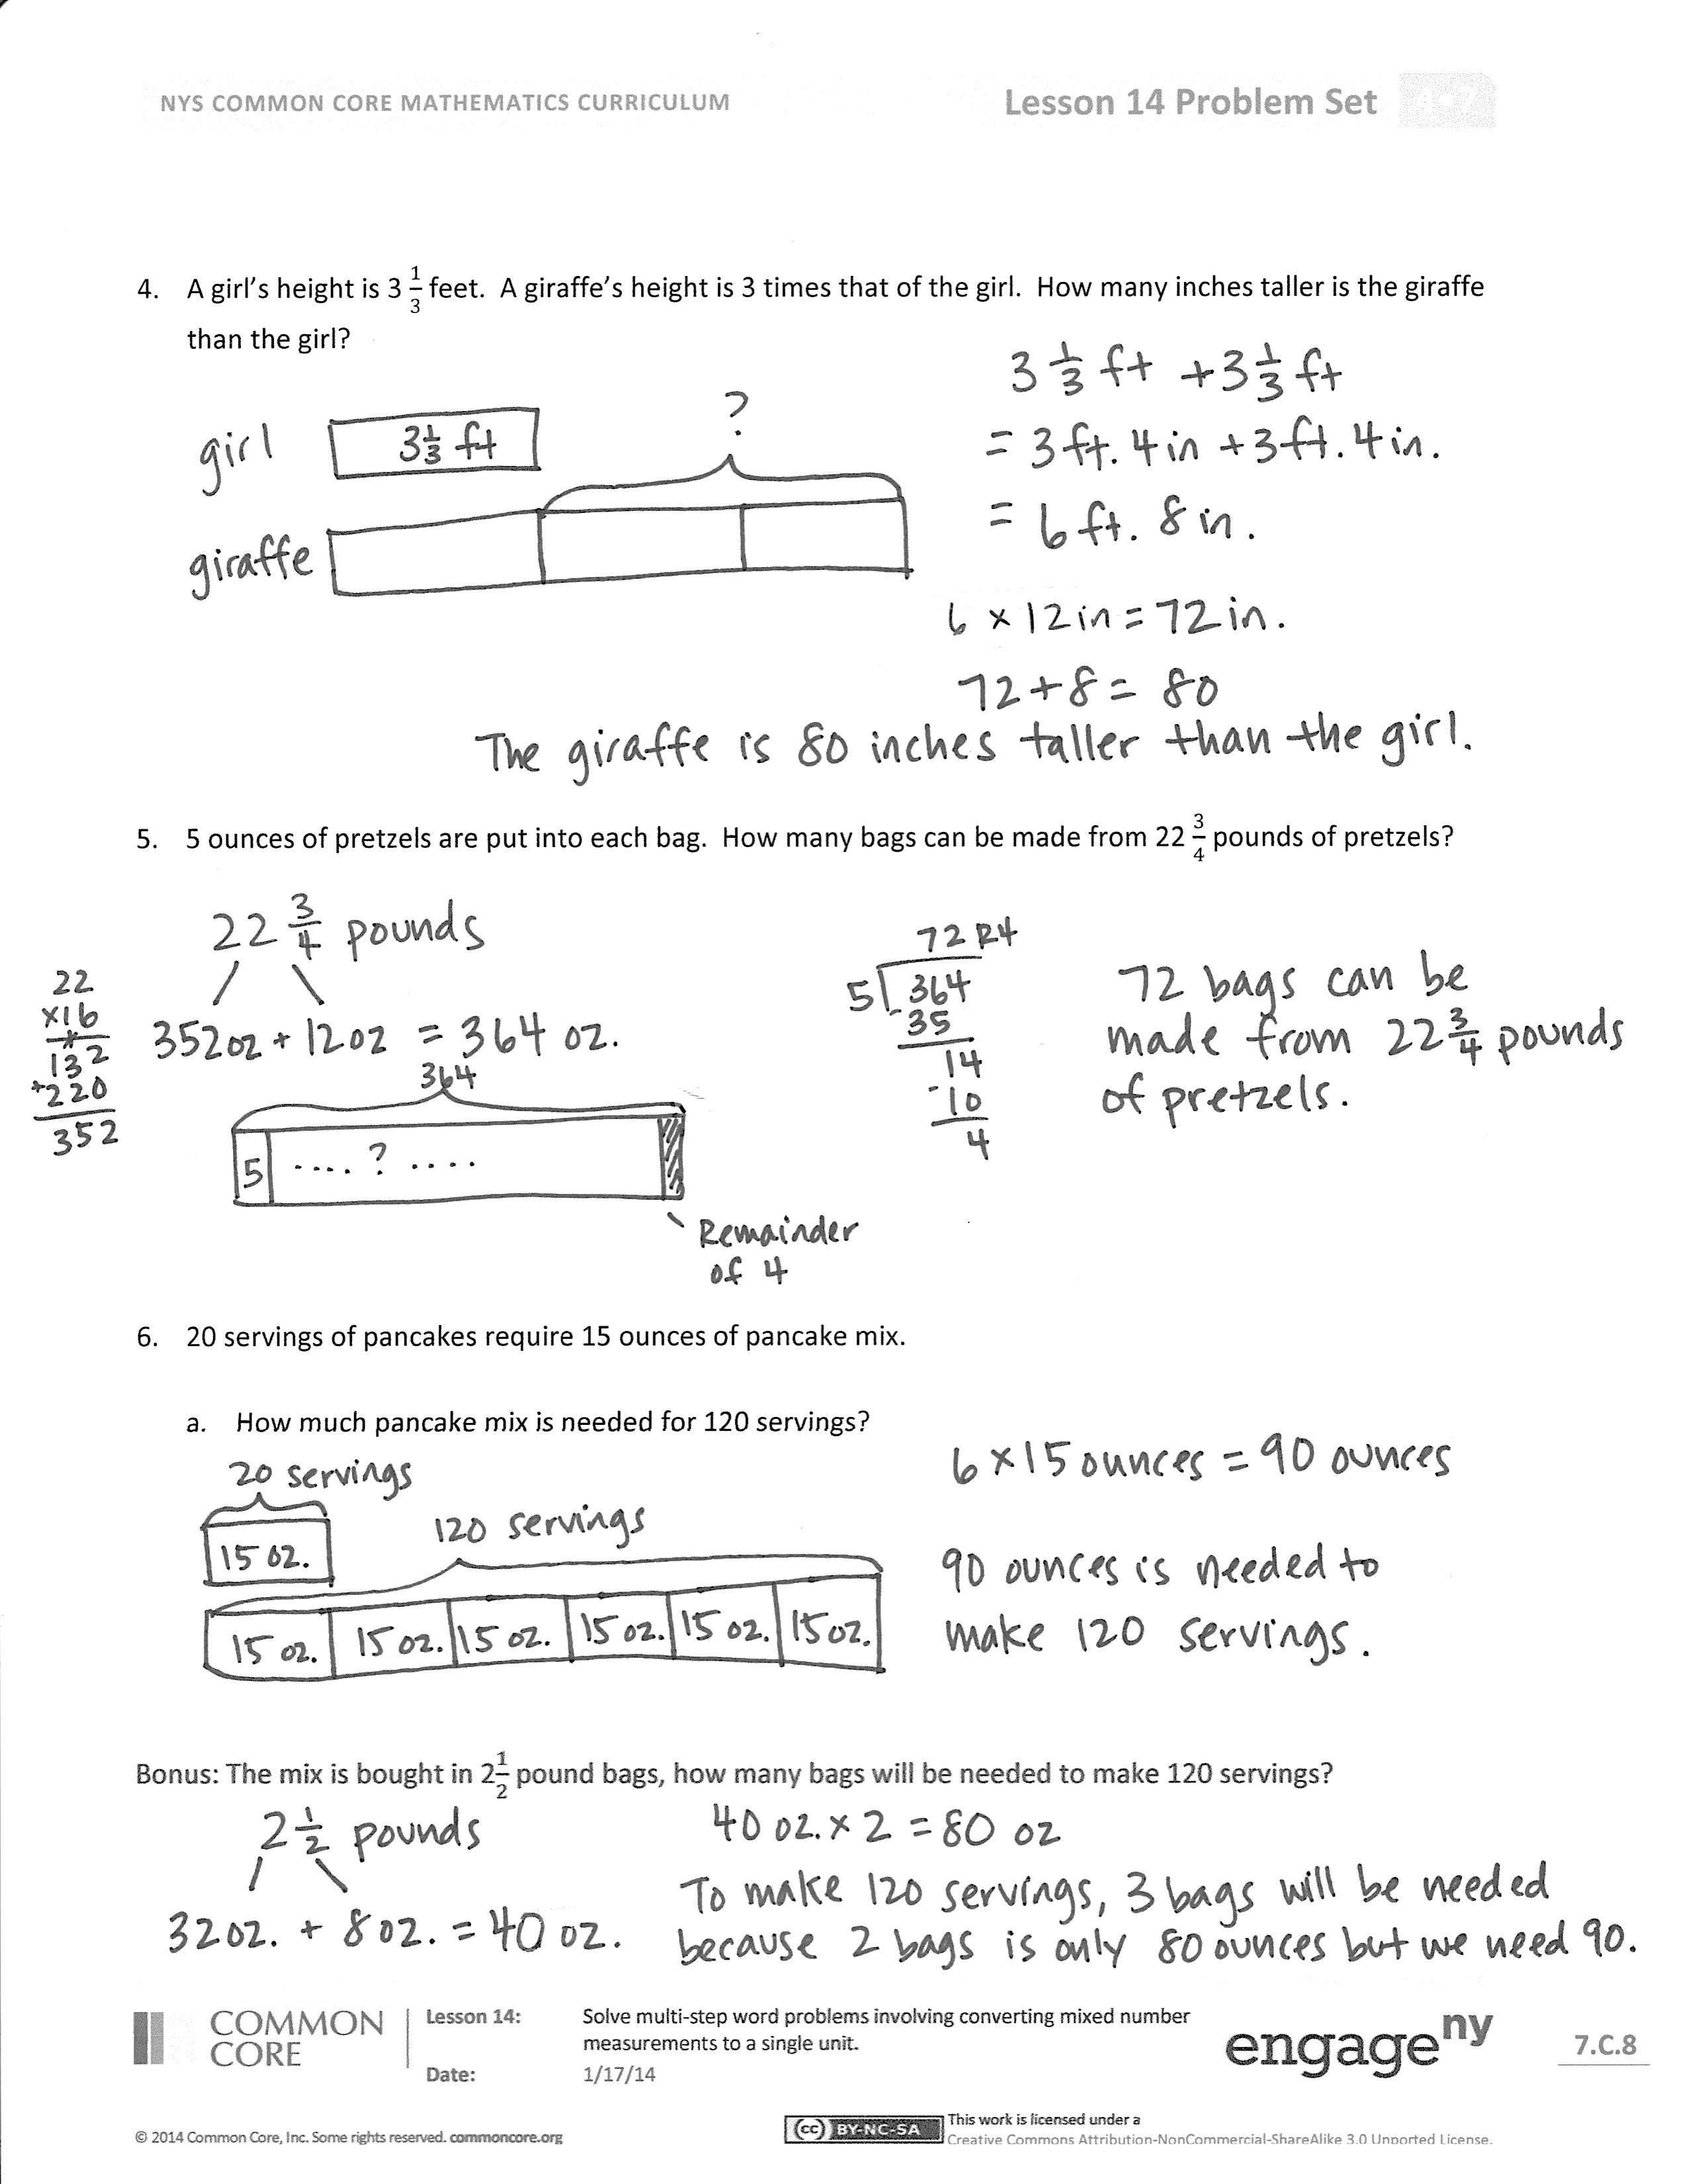 NYS COMMON CORE MATHEMATICS CURRICULUM
Lesson 14 Problem Set 4•7
4. A girl's height is 3 1/3 feet. A giraffe's height is 3 times that of the girl. How many inches taller is the giraffe
than the girl?
3 1/3 ft + 3 1/3 ft
?
girl 3 1/3 ft
= 3 ft. 4 in + 3 ft. 4 in.
= 6 ft. 8 in.
giraffe
6 × 12 in = 72 in.
72 + 8 = 80
The giraffe is 80 inches taller than the girl.
5. 5 ounces of pretzels are put into each bag. How many bags can be made from 22 3/4 pounds of pretzels?
22 3/4 pounds
22
×16
132
+220
352
352oz + 12oz = 364 oz.
364
5 .... ? ....
Remainder
of 4
72 R4
5 364
-35
14
-10
4
72 bags can be
made from 22 3/4 pounds
of pretzels.
6. 20 servings of pancakes require 15 ounces of pancake mix.
a. How much pancake mix is needed for 120 servings?
20 servings
15 oz.
120 servings
15 oz. 15 oz. 15 oz. 15 oz. 15 oz. 15 oz.
6 × 15 ounces = 90 ounces
90 ounces is needed to
make 120 servings.
Bonus: The mix is bought in 2 1/2 pound bags, how many bags will be needed to make 120 servings?
2 1/2 pounds
32 oz. + 8 oz. = 40 oz.
40 oz. × 2 = 80 oz
To make 120 servings, 3 bags will be needed
because 2 bags is only 80 ounces but we need 90.
COMMON
CORE
Lesson 14:
Solve multi-step word problems involving converting mixed number
measurements to a single unit.
Date:
1/17/14
engageny
7.C.8
© 2014 Common Core, Inc. Some rights reserved. commoncore.org
cc BY-NC-SA
This work is licensed under a
Creative Commons Attribution-NonCommercial-ShareAlike 3.0 Unported License.